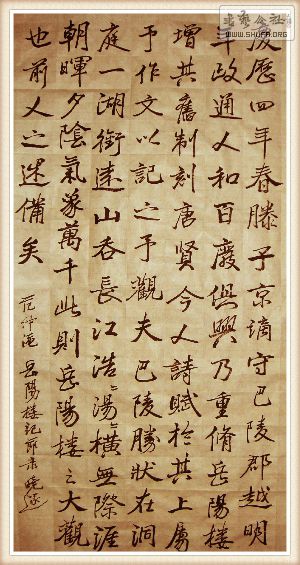 慶歷四年春滕子京謫守巴陵郡越明
年政通人和百廢俱興乃重脩岳陽樓
增其舊制刻唐賢今人詩賦於其上屬
予作文以記之予觀夫巴陵勝狀在洞
庭一湖銜遠山吞長江浩〻湯〻橫無際涯
朝暉夕陰氣象萬千此則岳陽樓之大觀
也前人之述備矣
范仲淹 岳陽樓記節录
WWW.SHUFA.ORG